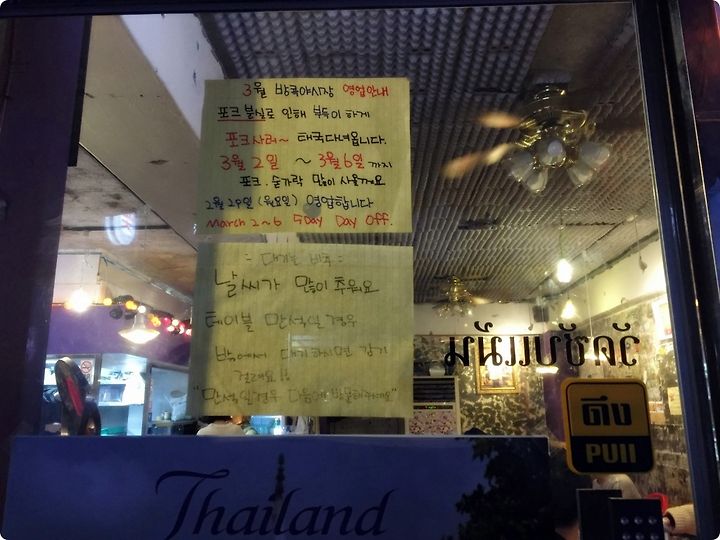 3월 방콕야시장 영업안내
포크 분실로 인해 부득이 하게
포크사러~ 태국다녀옵니다.
3월 2일 ~ 3월 6일 까지
포크. 숟가락 많이 사올게요
2월 29일 (월요일) 영업합니다
March 2~6 5Day Day Off.
날씨가 많이 추워요
테이블 만석일 경우
밖에서 대기하시면 감기
걸려요!!
"만석일경우 다음에 방문해주세요"
ดึง
PUll
Thailand